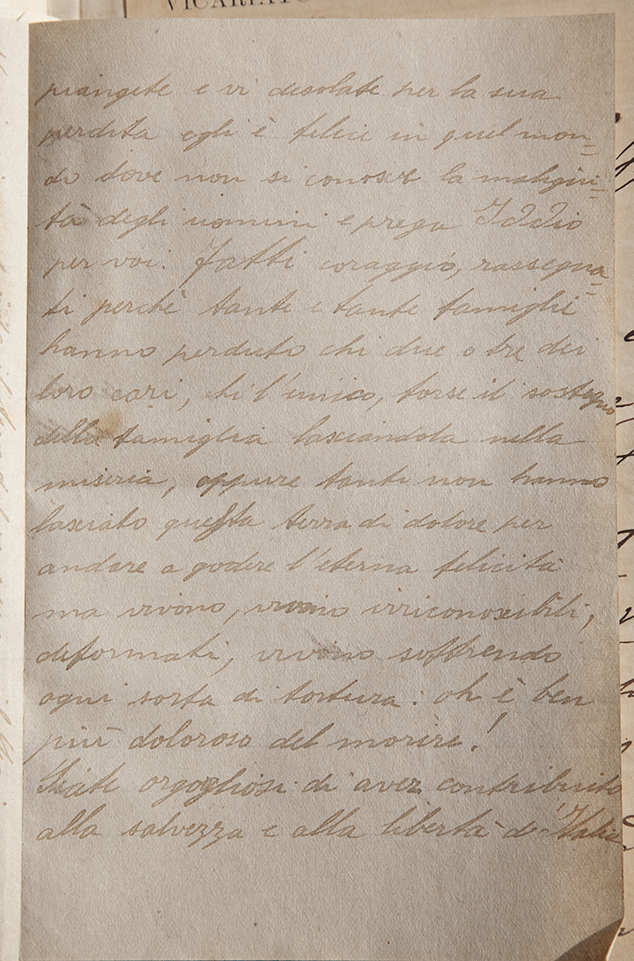 VICARIATO
piangete e vi desolate per la sua
perdita egli è felice in quel mon=
do dove non si conosce la maligni=
tà degli uomini e prega Iddio
per voi. Fatti coraggio, rassegna=
ti perchè tante e tante famiglie
hanno perduto chi due o tre dei
loro cari, chi l'unico, forse il sostegno
della famiglia lasciandola nella
miseria, oppure tanti non hanno
lasciato questa terra di dolore per
andare a godere l'eterna felicità
ma vivono, vivono irriconoscibili,
deformati, vivono soffrendo
ogni sorta di tortura: oh è ben
più doloroso del morire!
Siate orgogliosi di aver contribuito
alla salvezza e alla libertà d'Italia